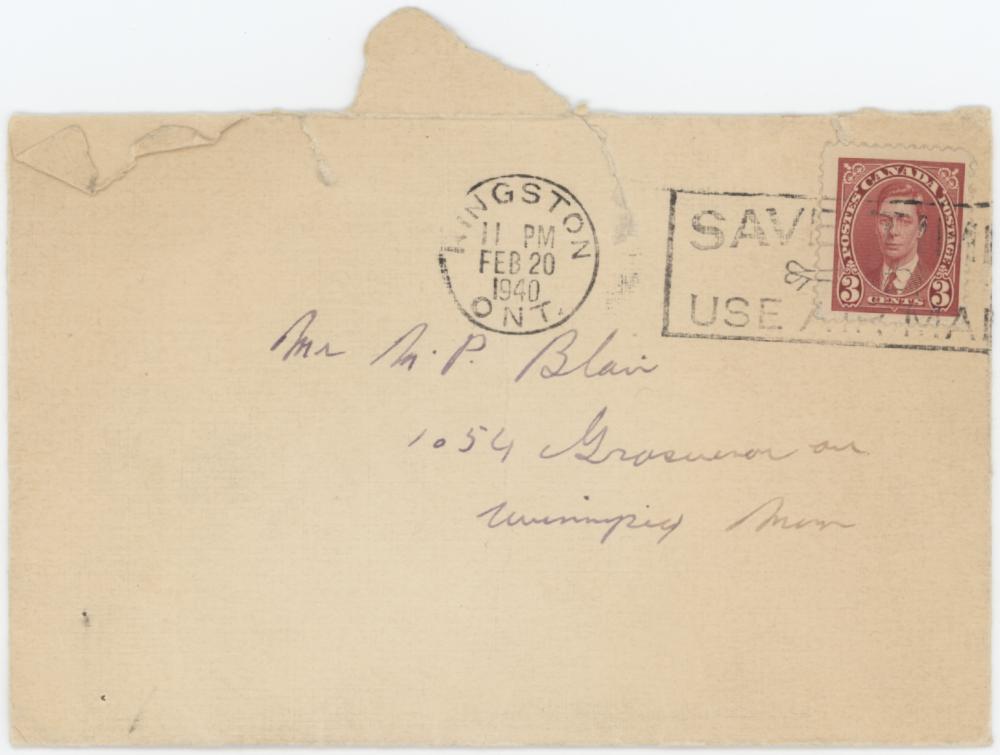 KINGSTON
11 PM
FEB 20
1940
ONT.
SAVE TIME
USE AIR MAIL
POSTES CANADA POSTAGE
3 CENTS 3
Mr M. P. Blair
1054 Grosvenor av
Winnipeg Man